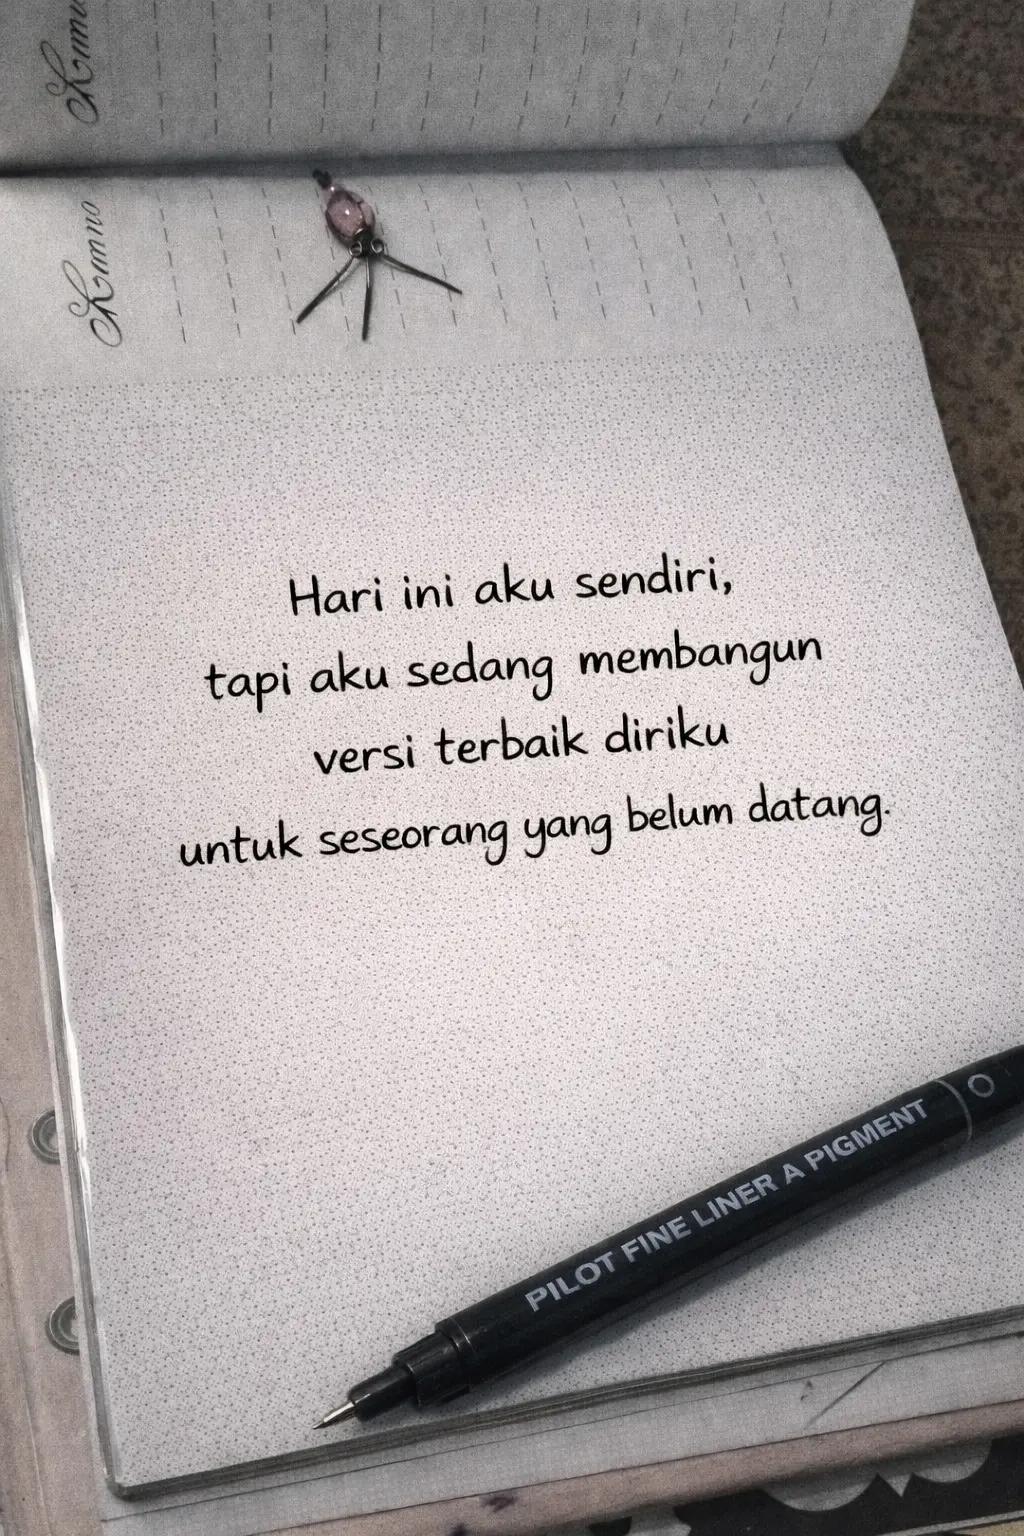 Hari ini aku sendiri,
tapi aku sedang membangun
versi terbaik diriku
untuk seseorang yang belum datang.
PILOT FINE LINER A PIGMENT